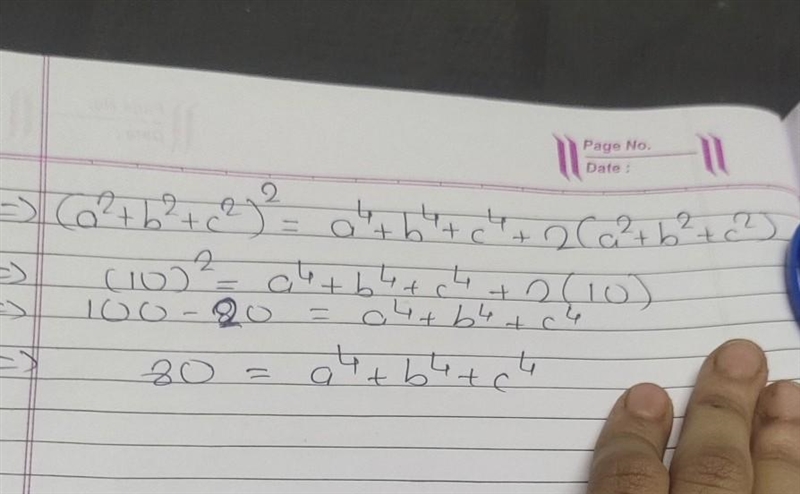 Page No.
Date :
=> (a²+b²+c²)² = a⁴+b⁴+c⁴+2(a²+b²+c²)
=> (10)² = a⁴+b⁴+c⁴+2(10)
=> 100-20 = a⁴+b⁴+c⁴
=> 80 = a⁴+b⁴+c⁴